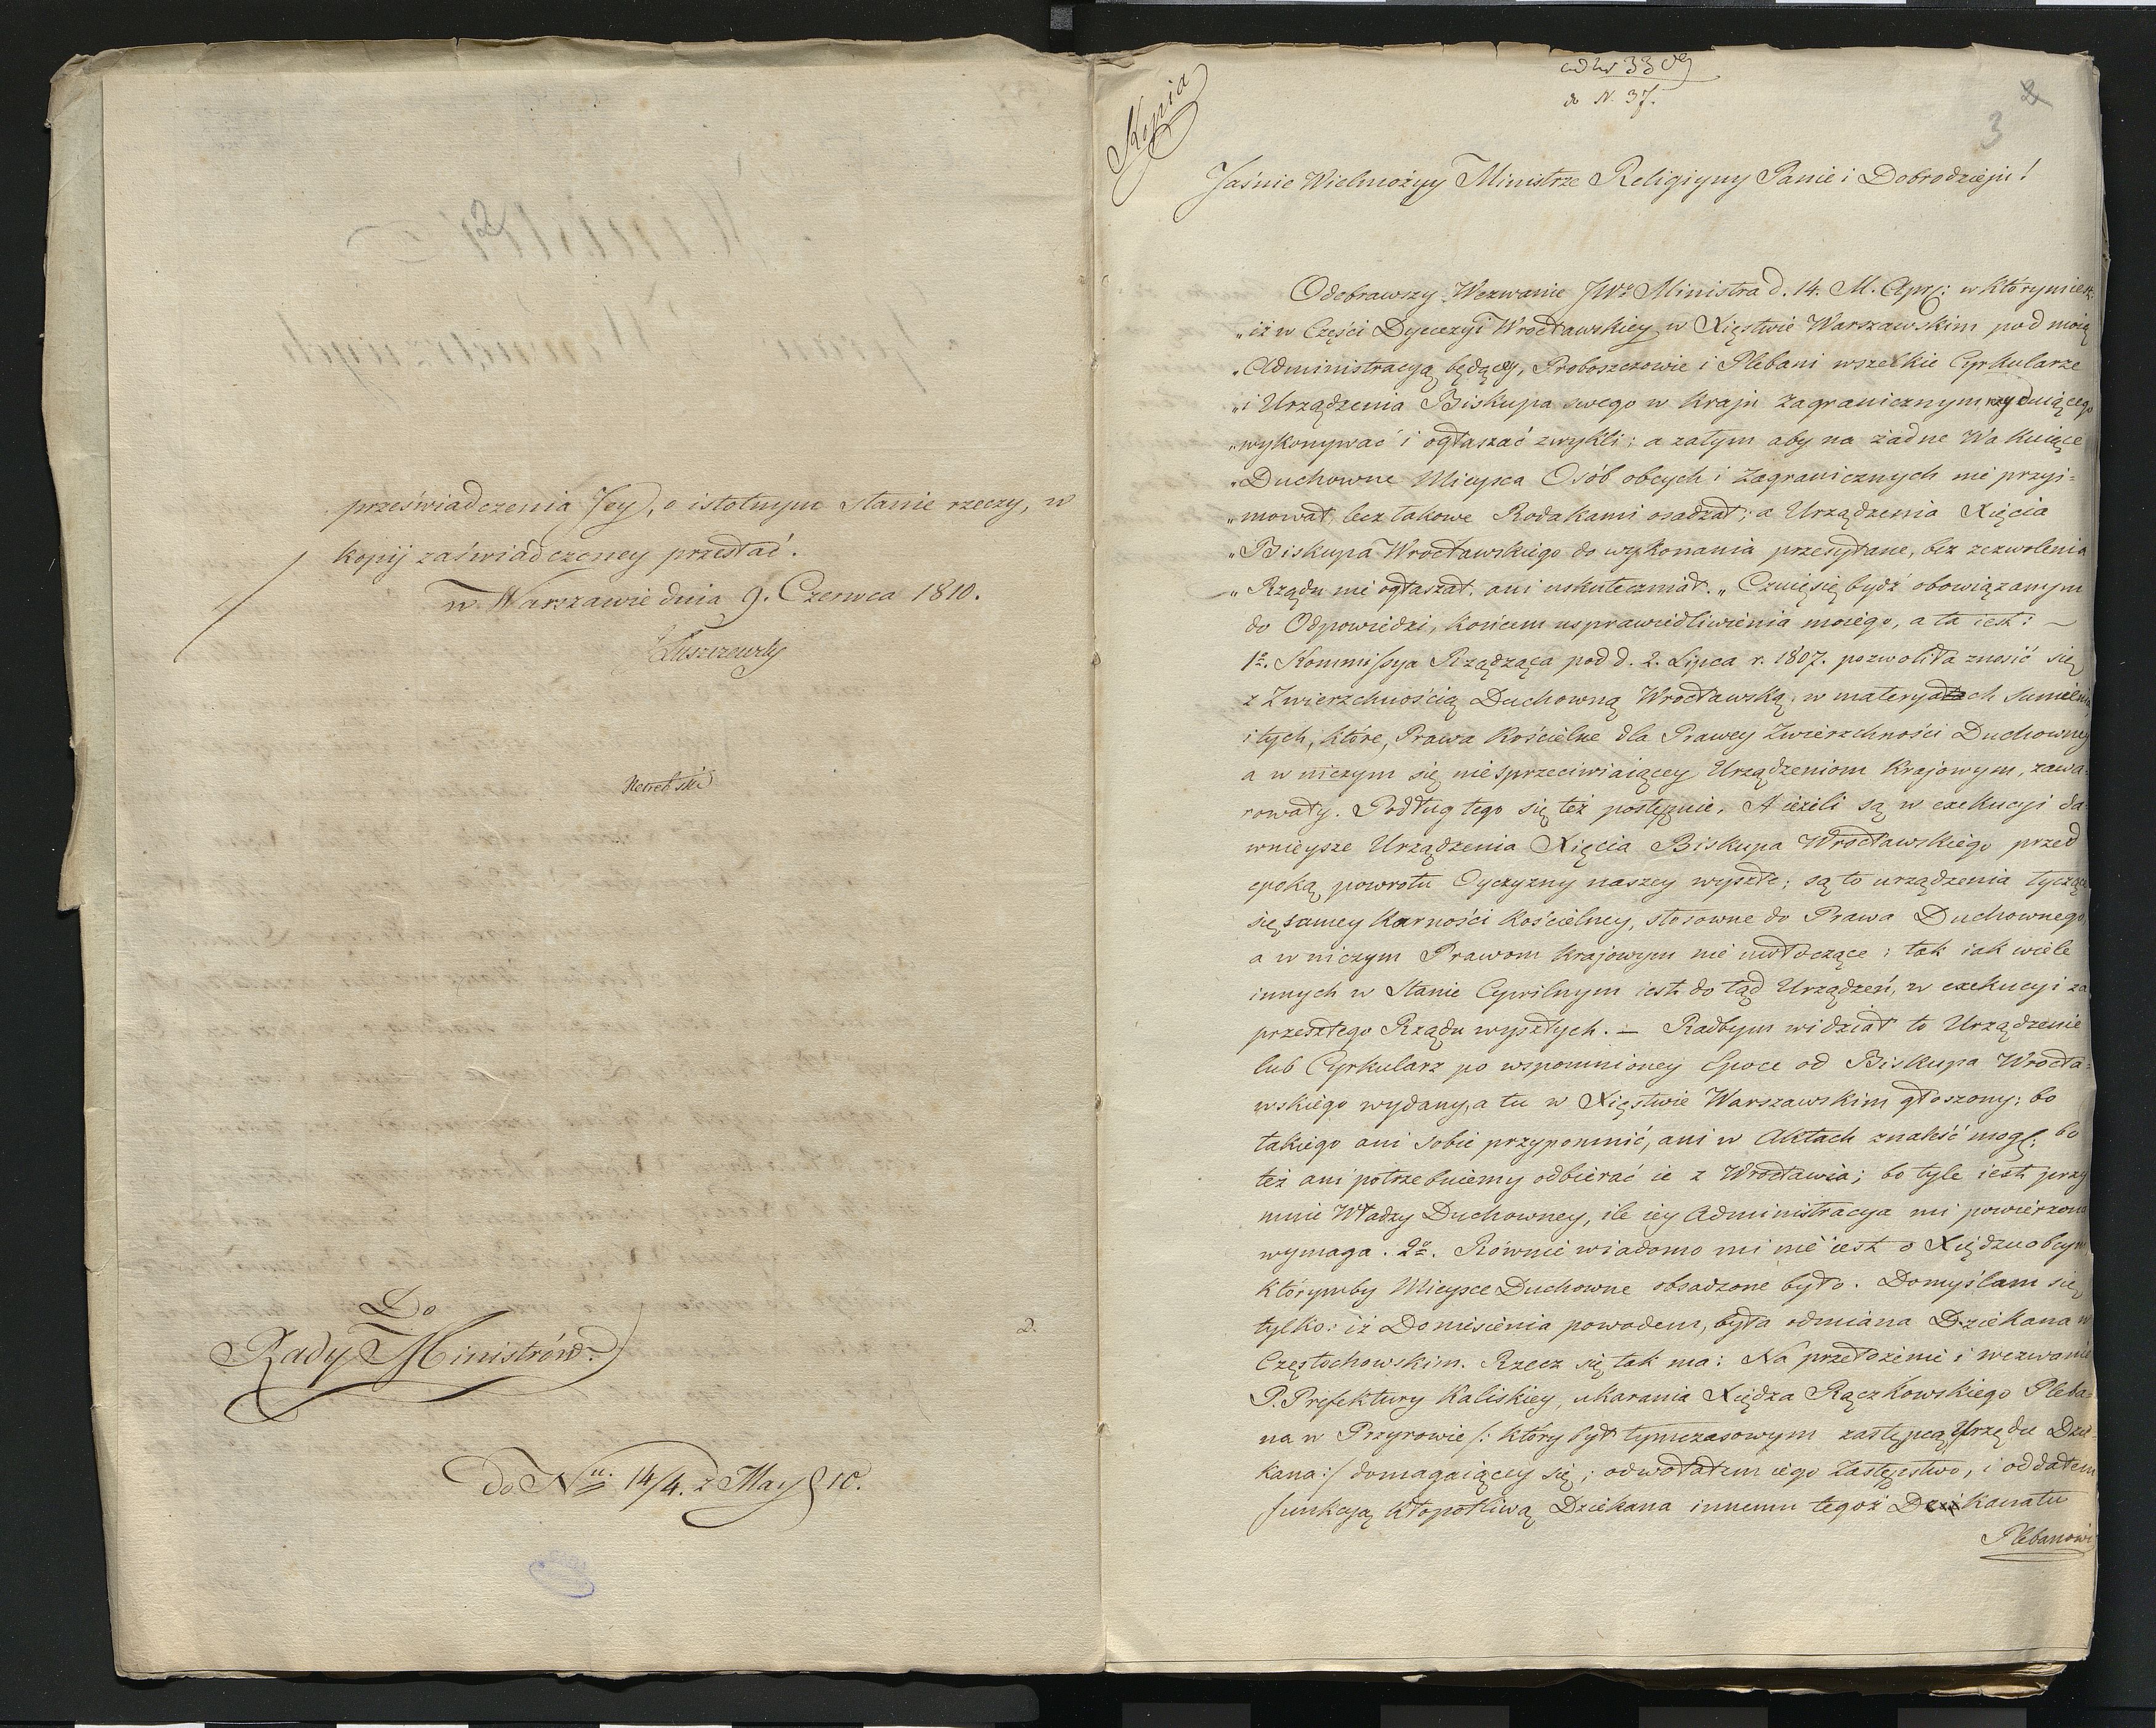 przeświadczenia Jey, o istotnym stanie rzeczy, w
kopij zaświadczoney przesłać.
w Warszawie dnia 9. Czerwca 1810.
Łuszczewski
Netrebski
Do
Rady Ministrów.
2.
do Nru 14/4. z May 810.
Kopia
do N. 37.
2
3
Jaśnie Wielmożny Ministrze Religiyny Panie i Dobrodzieju!
Odebrawszy Wezwanie JWo Ministra d. 14. M. Apr: w którym
„iż w Części Dyecezyi Wrocławskiey w Xięstwie Warszawskim pod moią
„Administracyą będącey, Proboszczowie i Plebani wszelkie Cyrkularze
„i Urządzenia Biskupa swego w kraju zagranicznym
„wykonywać i ogłaszać zwykli; a zatym aby na żadne Wakuiące
„Duchowne Mieysca Osób obcych i zagranicznych nie przyi-
„mował, lecz takowe Rodakami osadzał; a Urządzenia Xięcia
„Biskupa Wrocławskiego do wykonania przesyłane, bez zezwolenia
„Rządu nie ogłaszał, ani uskuteczniał.„ Czuię się bydź obowiązanym
do Odpowiedzi, końcem usprawiedliwienia moiego, a ta iest: —
1o. Kommissya Rządząca pod d. 2. Lipca r. 1807. pozwoliła znosić się
z Zwierzchnością Duchowną Wrocławską, w materyach Sumelnia
i tych, które, Prawa Kościelne dla Prawey Zwierzchności Duchowney
a w niczym się niesprzeciwiaiącey Urządzeniom Krajowym, zawa-
rowały. Podług tego się też postępuie. A ieżeli są w exekucyi da-
wnieysze Urządzenia Xięcia Biskupa Wrocławskiego przed
epoką powrotu Oyczyzny naszey wyszłe; są to urządzenia tyczące
się samey Karności Kościelney, stosowne do Prawa Duchownego,
a w niczym Prawom Krajowym nie uwłoczące; tak iak wiele
innych w Stanie Cywilnym iest do tąd Urządzeń, w exekucyi za
przeszłego Rządu wyszłych. — Radbym widział to Urządzenie
lub Cyrkularz po wspomnioney Epoce od Biskupa Wrocła-
wskiego wydany, a tu w Xięstwie Warszawskim głoszony; bo
takiego ani sobie przypomnić, ani w Aktach znaleść mogę; bo
też ani potrzebuiemy odbierać ie z Wrocławia; bo tyle iest przy
mnie Władzy Duchowney, ile iey Administracya mi powierzona
wymaga. 2o. Równie wiadomo mi nie iest o Xiędzu obcym,
którymby Mieysce Duchowne obsadzone było. Domyślam się
tylko: iż Doniesienia powodem, była odmiana Dziekana w
Częstochowskim. Rzecz się tak ma: Na przełożenie i wezwanie
P. Prefektury Kaliskiey, ukarania Xiędza Rączkowskiego Pleba-
na w Przyrowie /: który był tymczasowym zastępcą Urzędu Dzie-
kana :/ domagaiącey się; odwołałem iego Zastępstwo, i oddałem
funkcyą kłopotliwą Dziekana innemu tegoż Dekanatu
Plebanowi